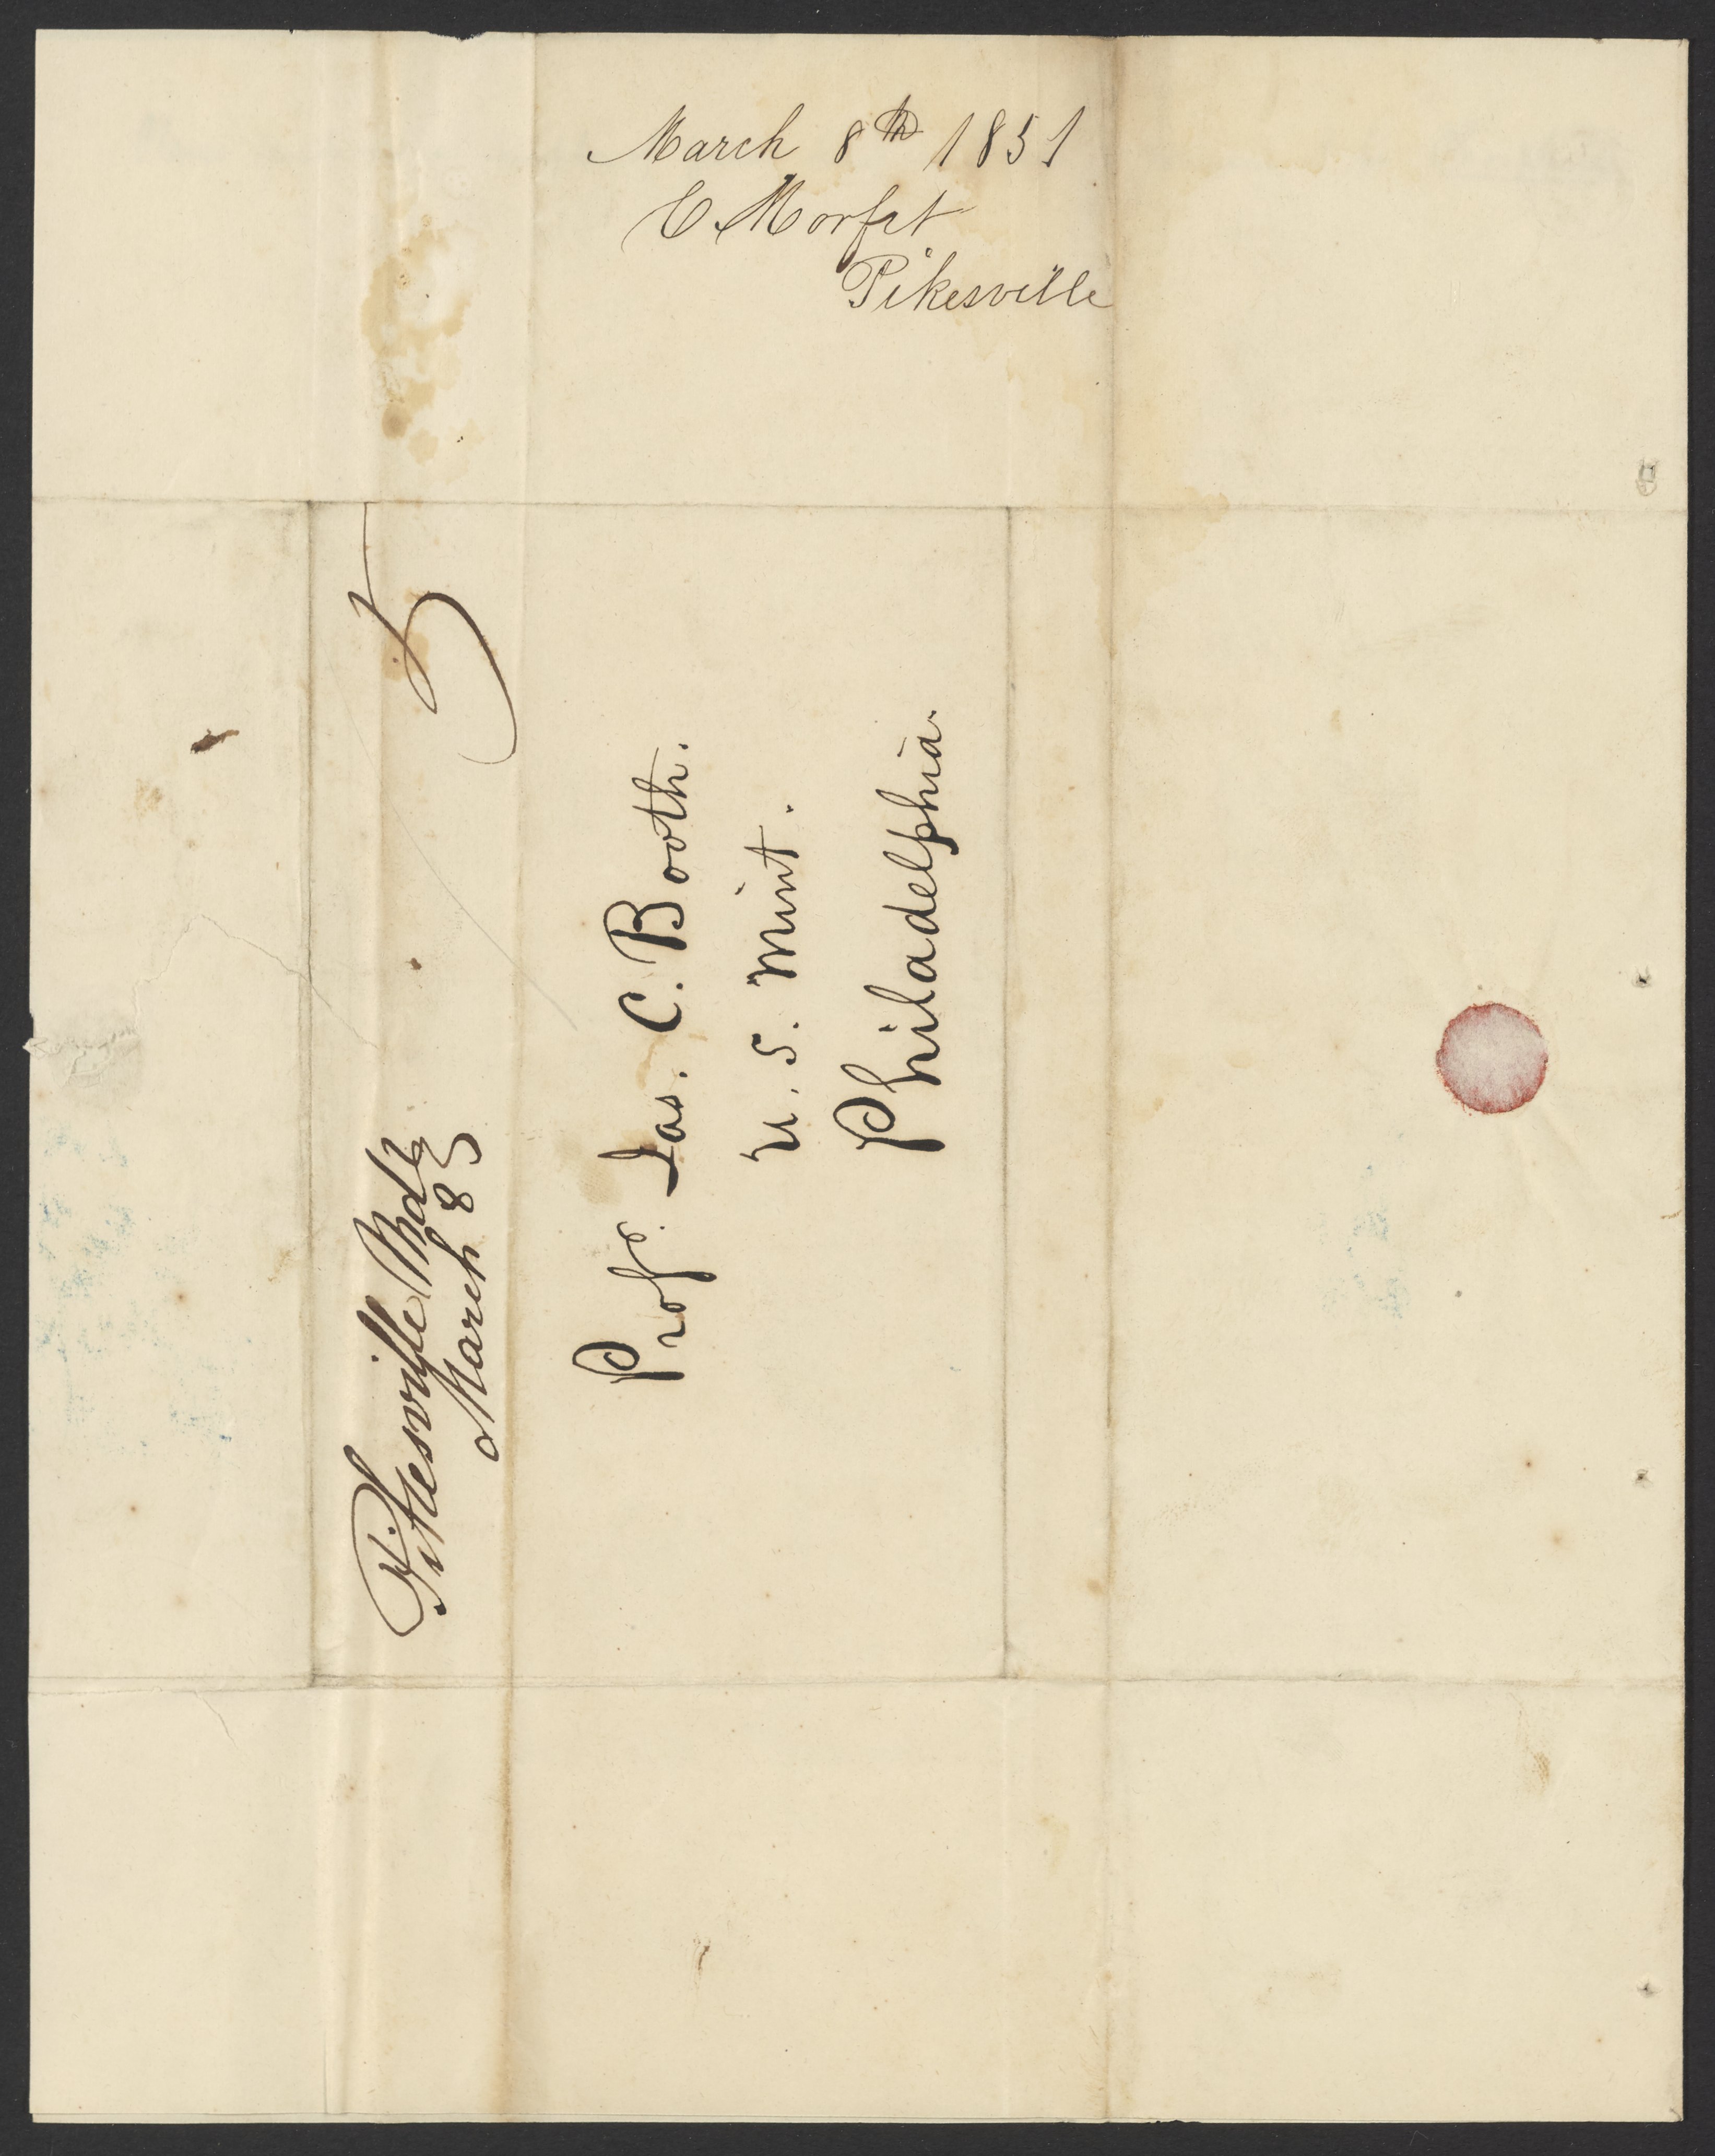 March 8th 1851
C Morfit
Pikesville
Pikesville Md
March 8
5
Profr. Jas. C. Booth.
U. S. Mint.
Philadelphia.